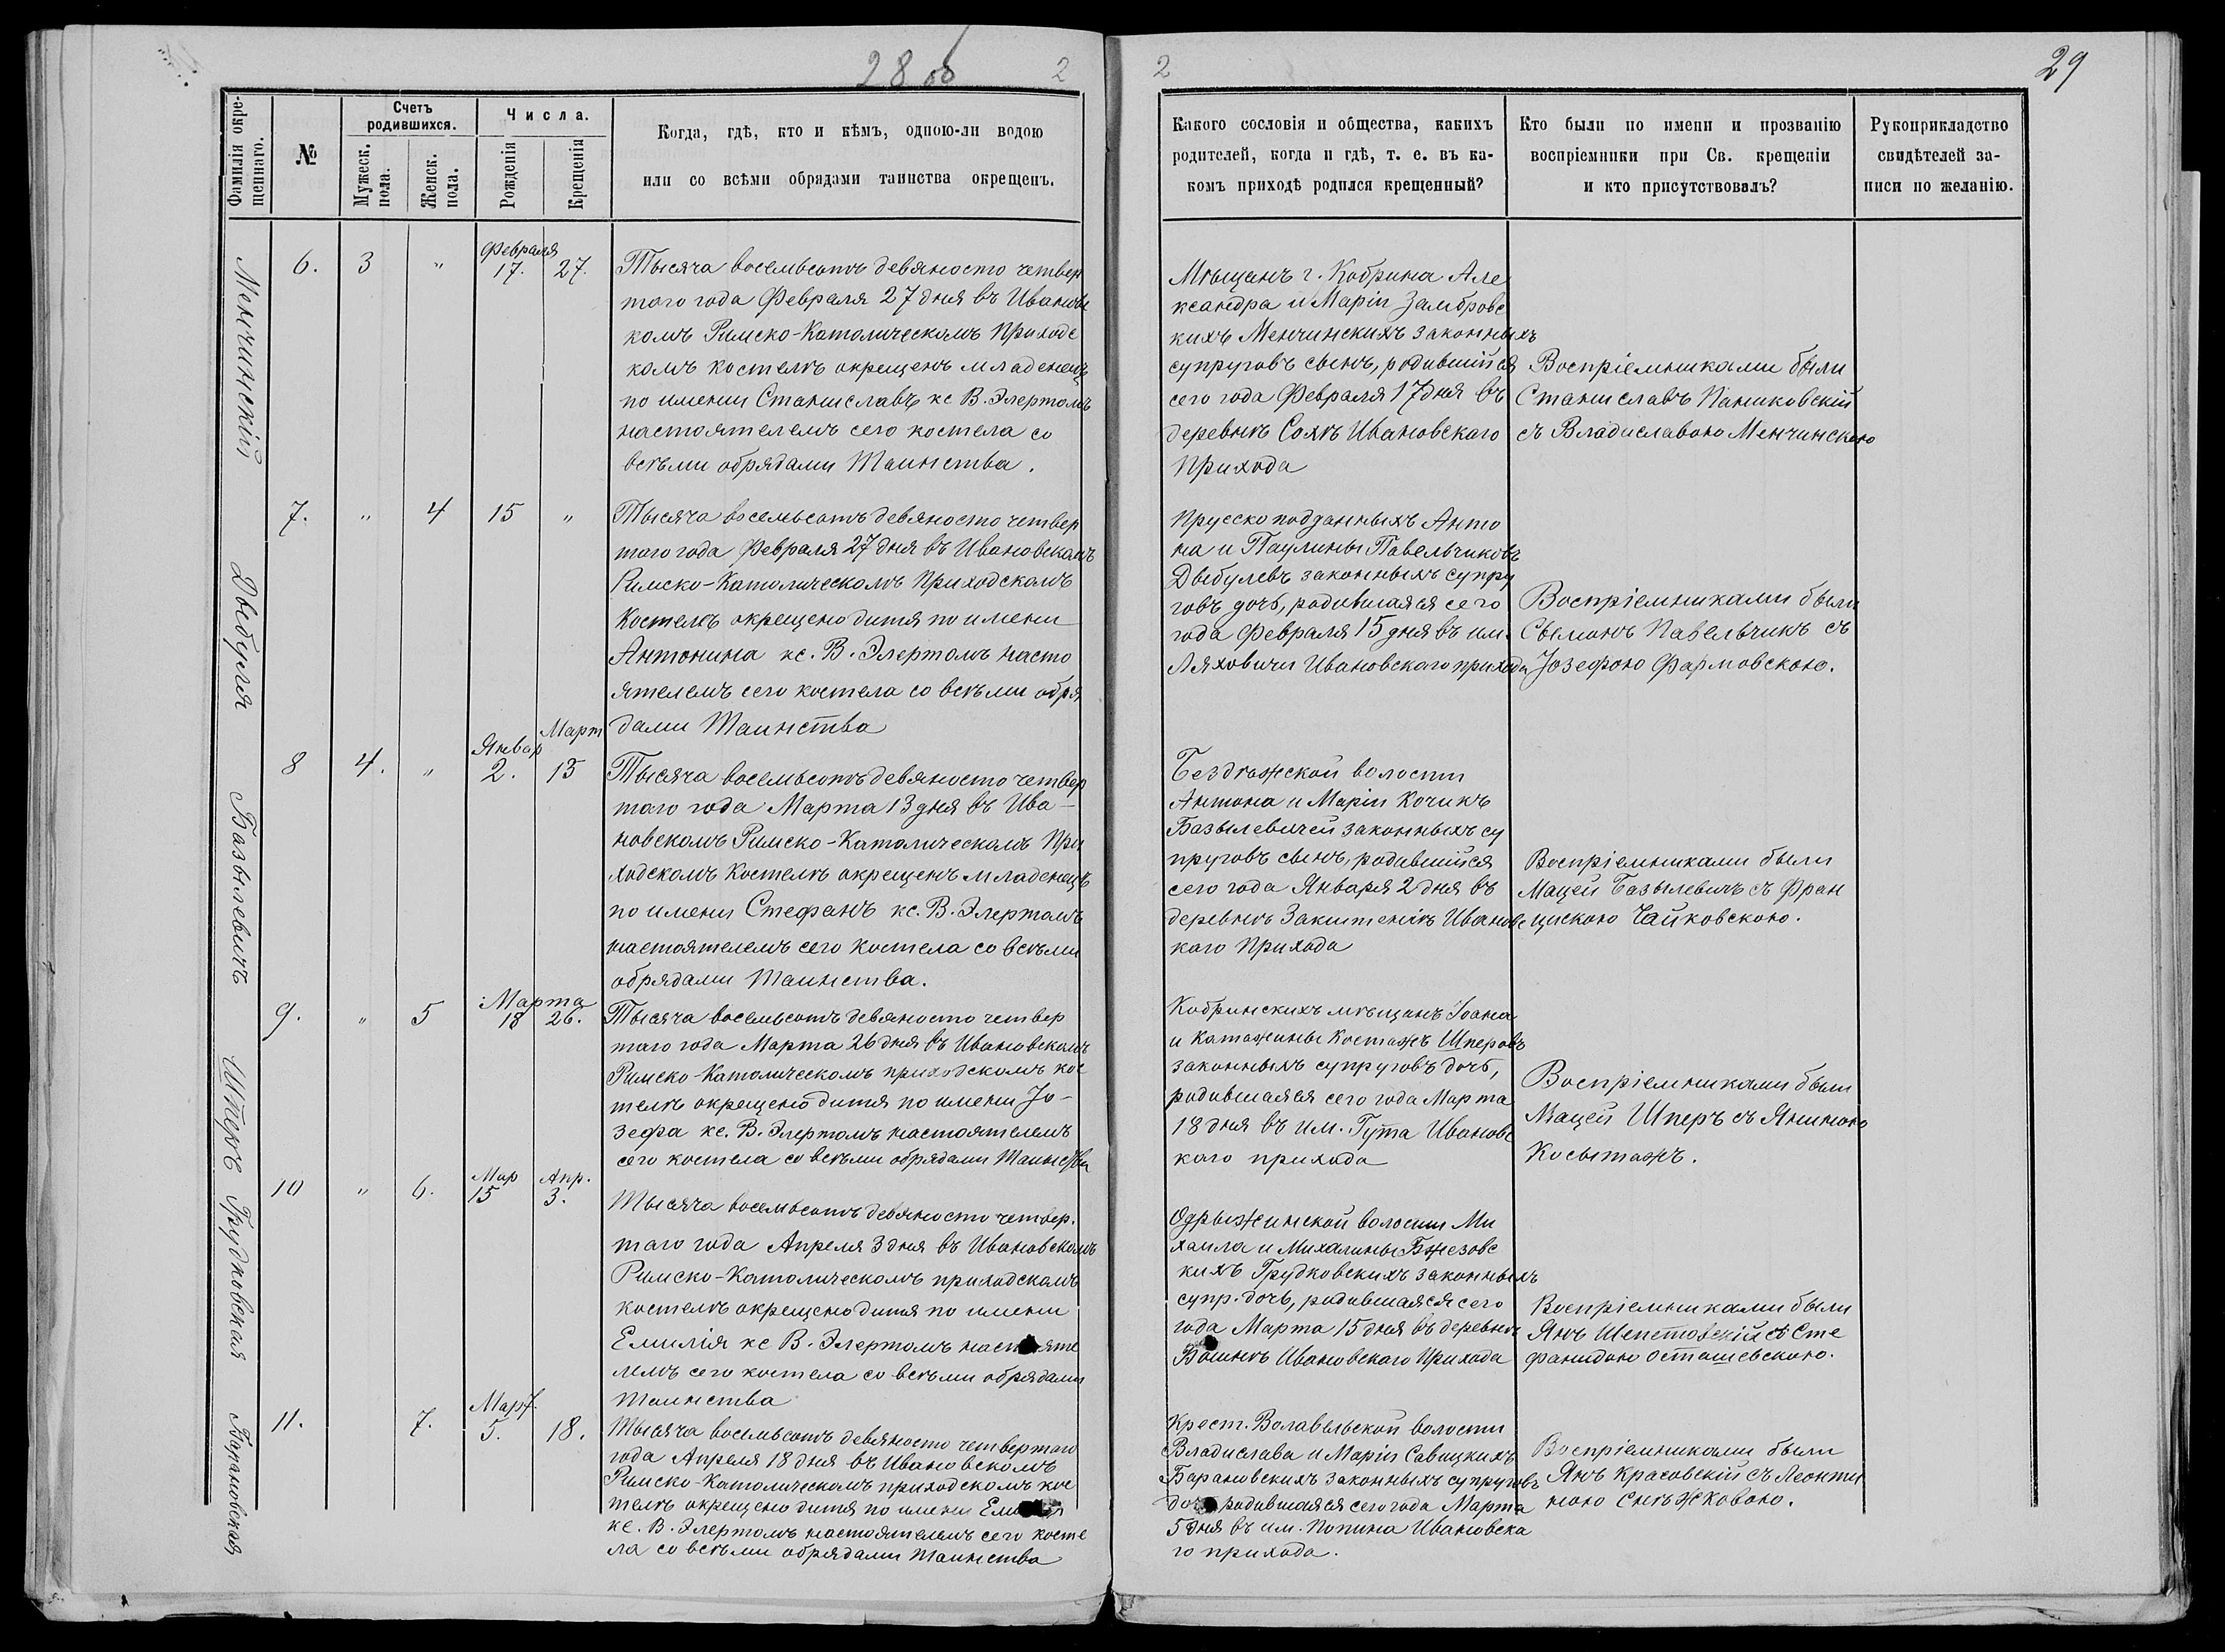 28 об
2
Фамилія окре-
щеннаго.
№
Счетъ
родившихся.
Мужеск.
пола.
Женск.
пола.
Числа.
Рожденія
Крещенія
Когда, гдѣ, кто и кѣмъ, одною-ли водою
или со всѣми обрядами таинства окрещенъ.
Менчинскій
6.
3
"
Февраля
17.
27.
Тысяча восемьсотъ девяносто четвер
таго года Февраля 27 дня въ Ивановс
комъ Римско-Католическомъ Приходс
комъ костелѣ окрещенъ младенецъ
по имени Станиславъ кс В. Элертомъ
настоятелемъ сего костела со
всѣми обрядами Таинства.
Дыбуля
7.
"
4
15
"
Тысяча восемьсотъ девяносто четвер
таго года Февраля 27 дня въ Ивановскомъ
Римско-Католическомъ Приходскомъ
Костелѣ окрещено дитя по имени
Антонина кс. В. Элертомъ насто
ятелемъ сего костела со всѣми обря
дами Таинства
Базылевичъ
8
4.
"
Январ
2.
Март
13
Тысяча восемьсотъ девяносто четвер
таго года Марта 13 дня въ Ива-
новскомъ Римско-Католическомъ При
ходскомъ Костелѣ окрещенъ младенецъ
по имени Стефанъ кс. В. Элертомъ
настоятелемъ сего Костела со всѣми
обрядами Таинства.
Шперъ
9.
"
5
Марта
18
26.
Тысяча восемьсотъ девяносто четвер
таго года Марта 26 дня въ Ивановскомъ
Римско-Католическомъ приходскомъ кос
телѣ окрещено дитя по имени Јо-
зефа кс. В. Элертомъ настоятелемъ
сего костела со всѣми обрядами Таинства
Грудковская
10
"
6.
Мар
15
Апр.
3.
Тысяча восемьсотъ девяносто четвер.
таго года Апреля 3 дня въ Ивановскомъ
Римско-Католическомъ приходскомъ
костелѣ окрещено дитя по имени
Емилія кс В. Элертомъ настояте
лемъ сего костела со всѣми обрядами
Таинства
Барановская
11.
7.
Март.
5.
18.
Тысяча восемьсотъ девяносто четвертаго
года Апреля 18 дня въ Ивановскомъ
Римско-Католическомъ приходскомъ кос
телѣ окрещено дитя по имени
кс. В. Элертомъ настоятелемъ сего косте
ла со всѣми обрядами Таинства
2
29
Какого сословія и общества, какихъ
родителей, когда и гдѣ, т. е. въ ка-
комъ приходѣ родился крещенный?
Кто были по имени и прозванію
воспріемники при Св. крещеніи
и кто присутствовалъ?
Рукоприкладство
свидѣтелей за-
писи по желанію.
Мѣщанъ г. Кобрина Але
ксандра и Маріи Замбровс
кихъ Менчинскихъ законныхъ
супруговъ сынъ, родившійся
сего года Февраля 17 дня въ
деревнѣ Солѣ Ивановскаго
Прихода
Воспріемниками были
Станиславъ Паниковскій
съ Владиславою Менчинскою
Прусско подданныхъ Анто
на и Паулины Павельчиковъ
Дыбулевъ законныхъ супру
говъ дочь, родившаяся сего
года Февраля 15 дня въ им.
Ляховичи Ивановскаго прихода
Воспріемниками были
Сымонъ Павельчикъ съ
Јозефою Фармовскою.
Бездѣжской волости
Антона и Маріи Кочикъ
Базылевичей законныхъ су
пруговъ сынъ, родившійся
сего года Января 2 дня въ
деревнѣ Закитеніѣ Ивановс
каго Прихода
Воспріемниками были
Мацей Базылевичъ съ Фран
цискою Чайковскою.
Кобринскихъ мѣщанъ Іоана
и Катажины Костажъ Шперовъ
законныхъ супруговъ дочь,
родившаяся сего года Марта
18 дня въ им. Гута Ивановс
каго прихода
Воспріемниками были
Мацей Шперъ съ Яниною
Косытажъ.
Одрыжинской волости Ми
хаила и Михалины Бжезовс
кихъ Грудковскихъ законныхъ
супр. дочь, родившаяся сего
года Марта 15 дня въ деревнѣ
Ивановскаго Прихода
Воспріемниками были
Янъ Шепетовскій съ Сте
фанидою Осташевскою.
Крест. Волавельской волости
Владислава и Маріи Савицкихъ
Барановскихъ законныхъ супруговъ
дочь родившаяся сего года Марта
5 дня въ им. Попина Ивановска
го прихода.
Воспріемниками были
Янъ Красовскій съ Леонти
ною Снѣжковою.